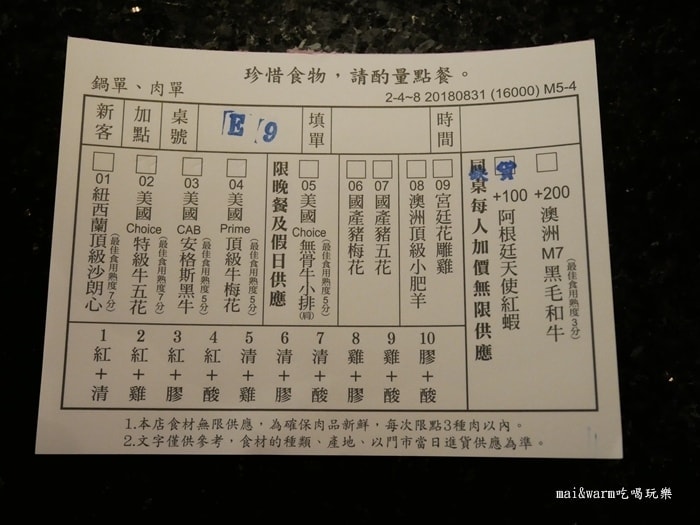 珍惜食物，請酌量點餐。
鍋單、肉單
2-4~8 20180831 (16000) M5-4
新客
加點
桌號
E 9
填單
時間
01紐西蘭頂級沙朗心(最佳食用熟度7分)
02美國Choice特級牛五花(最佳食用熟度7分)
03美國CAB安格斯黑牛(最佳食用熟度5分)
04美國Prime頂級牛梅花(最佳食用熟度5分)
限晚餐及假日供應
05美國Choice無骨牛小排(肩)(最佳食用熟度5分)
06國產豬梅花
07國產豬五花
08澳洲頂級小肥羊
09宮廷花雕雞
同桌每人加價無限供應
+100阿根廷天使紅蝦
+200澳洲M7黑毛和牛(最佳食用熟度3分)
1紅+清
2紅+雞
3紅+膠
4紅+酸
5清+雞
6清+膠
7清+酸
8雞+膠
9雞+酸
10膠+酸
1.本店食材無限供應，為確保肉品新鮮，每次限點3種肉以內。
2.文字僅供參考，食材的種類、產地、以門市當日進貨供應為準。
mai&warm吃喝玩樂